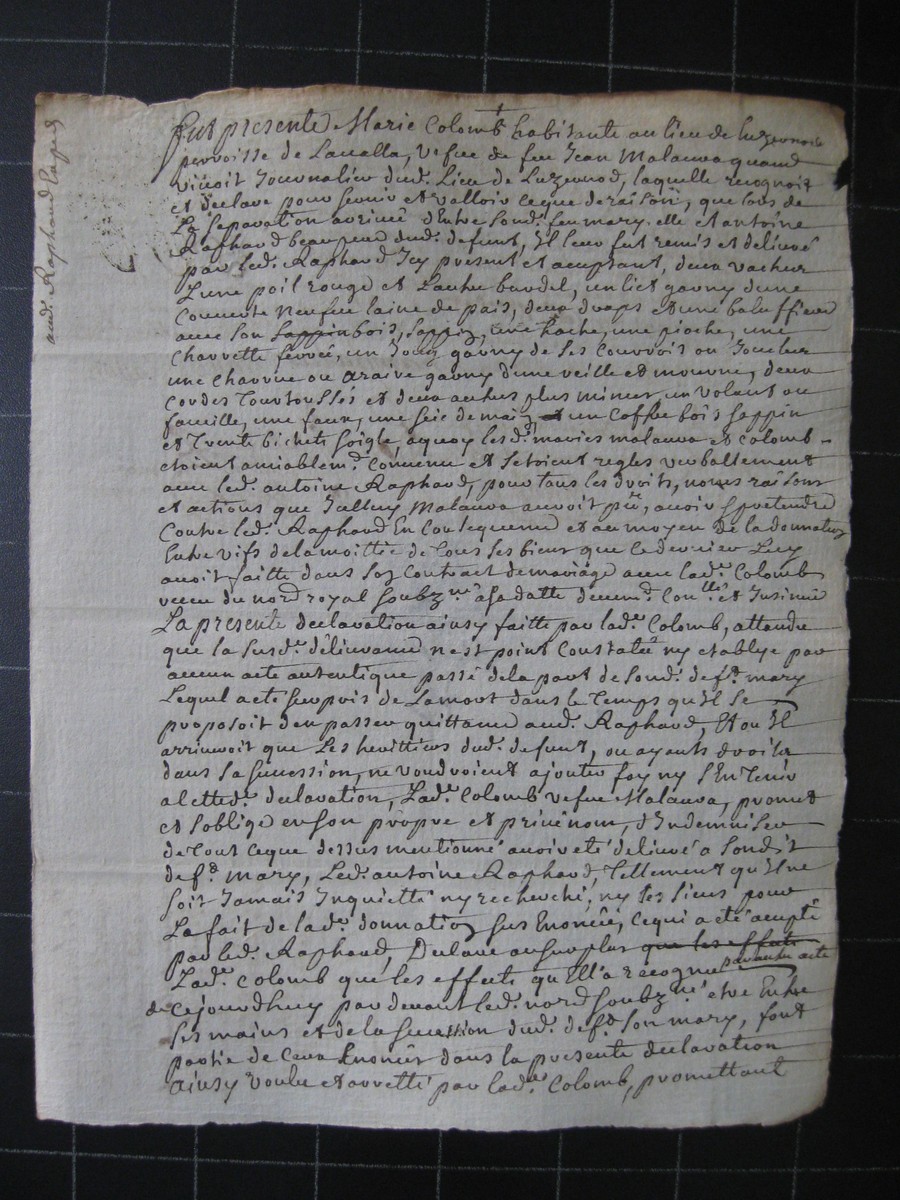 Fut presente Marie Colomb habitante au lieu de Luzernod
parroisse de Lavalla, vefve de feu Jean Malauva quand
vivoit Journalier dud. Lieu de Luzernod, laquelle recognoit
et declare pour servir et valloir ceque de raison, que lors de
La separation arrivée d'Entre sond. feu mary, elle et antoine
Raphard beaupere dud. defunt, il leur fut remis et délivré
par led. Raphard Icy présent et aceptant, deux vaches
L'une poil rouge et L'autre bardel, un lict garny d'une
Couverte neufve laine de pais, deux draps et une baluffiere
avec son bois sappin, une hache, une pioche, une
charrette ferrée, un Joug garny de ses Courrois ou Joucles
une charrue ou araire garny d'une reille et mourre, deux
cordes Tourtousses et deux autres plus minces, un volant ou
faucille, une faux, une scie de main, un Coffre bois sappin
et Trente bichets soigle, aquoy lesd. mariés malauva et colomb
etoient amiablemt. Convenu et s'etoient reglés verballement
avec led. antoine Raphard, pour tous les droits, noms raisons
et actions que Jullien Malauva auroit pu avoir & pretendre
Contre led. Raphard En Consequence et au moyen de la donnation
Entre vifs de la moittié de Tous ses biens que ce dernier Luy
avoit faitte dans son Contract de mariage avec lad.e Colomb
receu du nore royal soubzne. a sa datte duemt. Conllé. et Insinué
La presente declaration ainsy faitte par lad.e Colomb, attendu
que la susd.e délivrance n'est point Constatée ny etablye par
aucun acte autentique passé de la part de sond. deft. mary
Lequel acte surpris de La mort dans le Temps qu'il se
proposoit d'en passer quittance aud. Raphard, Et ou il
arriveroit que Les herittiers dud. defunt, ou ayants droits
dans sa sucession, ne voudroient ajouter foy ny s'En Tenir
a cetted.e declaration, Lad.e Colomb vefve Malauva, promet
et s'oblige en son propre et privé nom, d'Indemniser
de Tout ceque dessus mentionné avoir eté delivré a sondit
deft. mary, Led. antoine Raphard, Tellement qu'il ne
soit Jamais Inquietté ny recherché, ny les siens pour
La fait de lad.e donnation sus Enoncée, Cequi a eté acepté
par led. Raphard, Declare au surplus que les effets
Lad.e Colomb que les effets qu'Ell'a recognu par autre acte
de cejourdhuy par devant led. nore soubzne. etre Entre
ses mains et de la sucession dud. deft. son mary, font
partie de Ceux Enoncés dans la presente declaration
Ainsy voulu et arretté par lad.e Colomb, promettant
aud. Raphard